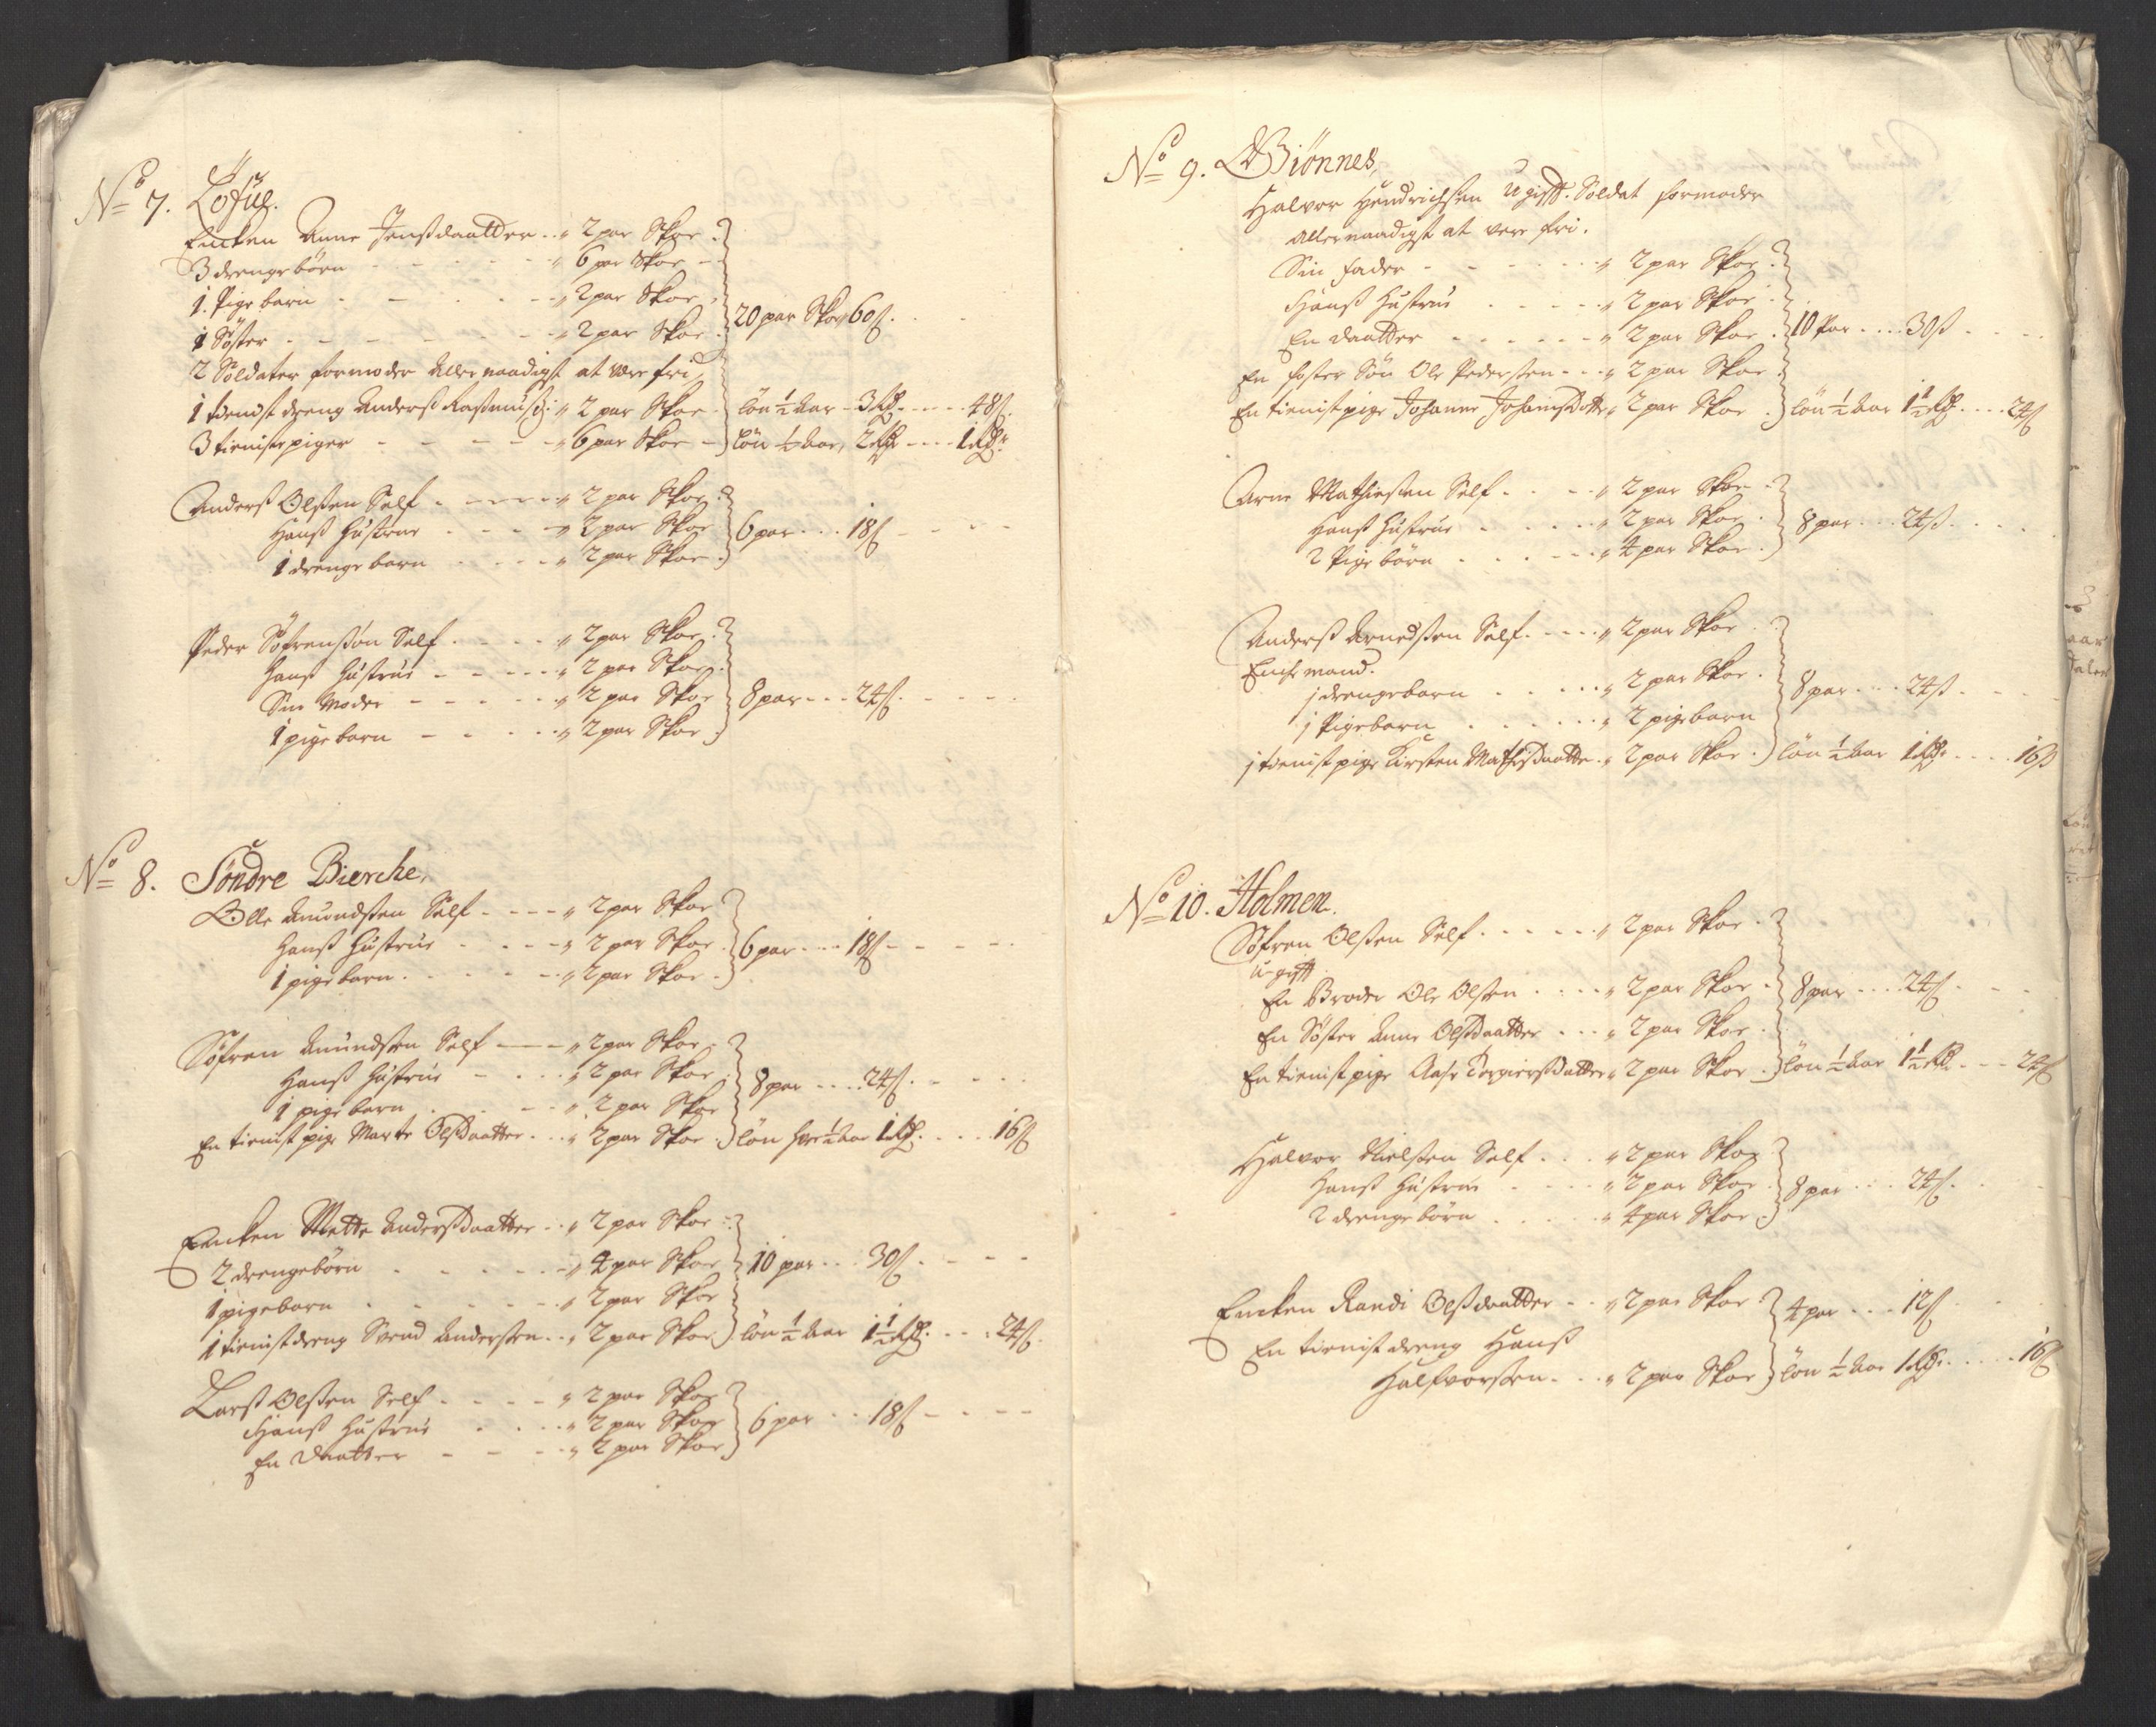 No 7. Löfül.
Encken Anne Jensdaatter .. " 2 par Skoe .
3 drengebörn - - - - - " 6 par Skoe -
1. Pige barn . - - - - - " 2 par Skoe .
1 Söster - - - - - - - " 2 par Skoe . 20 par Skoe 60 ß. . -
2 Soldater formoder Allernaadigst at være fri,
1 tienist dreng Anderß Raßmusß: " 2 par Skoe . lön ½ Aar - 3 Rdr - - - - 48 ß.
3 tieniste piger - - - - - " 6 par Skoe - lön ½ Aar, 2 Rdr - - - 1 Rdr
Anderß Olßen Self - - - - - " 2 par Skoe .
Hanß Hustrue - - - - " 2 par Skoe 6 par . . . 18 ß - - - -
1 drenge barn - - - - " 2 par Skoe .
Peder Söfrenßön Self . - - - " 2 par Skoe .
Hanß Hustrue - - - - - " 2 par Skoe .
Sin Moder - - - - - " 2 par Skoe 8 par - - - 24 ß. - - - -
1 pige barn - - - - . " 2 par Skoe .
No 8. Söndre Bierche,
Olle Amundßen Self - - - - " 2 par Skoe
Hanß Hustrue . - - - " 2 par Skoe . 6 par - - - 18 ß - - - - -
1 pige barn . - - - - " 2 par Skoe .
Söfren Amundßen Self - - " 2 par Skoe .
Hanß Hustrue - - - - " 2 par Skoe 8 par - - - - 24 ß. - - - -
1 pige barn . - - - " 2 par Skoe
En tienist pige Marte Olsdaatter . . " 2 par Skoe . lön for ½ Aar 1 Rdr. . . . 16 ß
Encken Mette Andersdaatter . . " 2 par Skoe .
2 drengebörn - - - - - - " 4 par Skoe 10 par . . . 30 ß - - - -
1 pigebarn . - - - - - " 2 par Skoe
1 tienist dreng Svend Anderßen . . " 2 par Skoe lön ½ Aar 1½ Rdr. - - . 24 ß.
Larß Olßen Self - - - - " 2 par Skoe
Hanß Hustrue . - - - " 2 par Skoe 6 par - - - 18 ß - - - -
En Daatter - - - - " 2 par Skoe
No 9. Biönnes,
Halvor Hendrichsen Ugifft. Soldat formoder
Allernaadigst at vere fri.
Sin Fader - - - - - - " 2 par Skoe .
Hanß Hustrue - - - - " 2 par Skoe .
En daatter - - - - - - " 2 par Skoe . 10 Par - - - - 30 ß - - - -
En foster Sön Ole Pederßen - - " 2 par Skoe .
En tienist pige Johanne Johansdotter " 2 par Skoe . lön ½ Aar 1½ Rdr. . . . 24 ß
Arne Mathießen Self - - - - " 2 par Skoe .
Hanß Hustrue - - - - - " 2 par Skoe . 8 par . . . 24 ß. . . . .
2 Pige börn . - - - - - " 4 par Skoe .
Anderß Arnedßen Self . - - - - " 2 par Skoe .
Enche mand.
j drengebarn - - - - - - " 2 par Skoe . 8 par - - - 24 ß - - - -
j Pigebarn . - - - - - " 2 pigebarn
j tienist pige Kirsten Mathisdaatter . " 2 par Skoe . lön ½ Aar 1 Rdr. - - - . 16 ß
No 10. Holmen.
Söfren Olßen Self - - - - - - " 2 par Skoe .
Ugifft
En Broder Ole Olßen . - - - " 2 par Skoe . 8 par - - - 24 ß - - - -
En Söster Anne Olsdaatter - - - " 2 par Skoe .
En tienist pige Aase Torgiersdatter " 2 par Skoe . lön ½ Aar 1½ Rdr. - - - 24 ß
Halvor Nielßen Self . - . " 2 par Skoe
Hanß Hustrue - - - - " 2 par Skoe . 8 par - - - - 24 ß. - - -
2 drengebörn . - - - - " 4 par Skoe .
Encken Randi Olsdaatter - - " 2 par Skoe . 4 par - - - 12 ß - - - -
En tienist dreng Hanß
Halfvorßen - - - " 2 par Skoe lön ½ Aar 1 Rdr. - - - - 16 ß